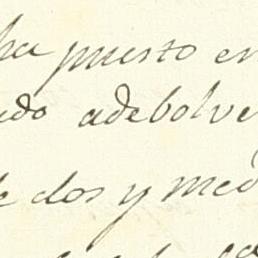 ha puesto en
ado adebolve
de dos y med